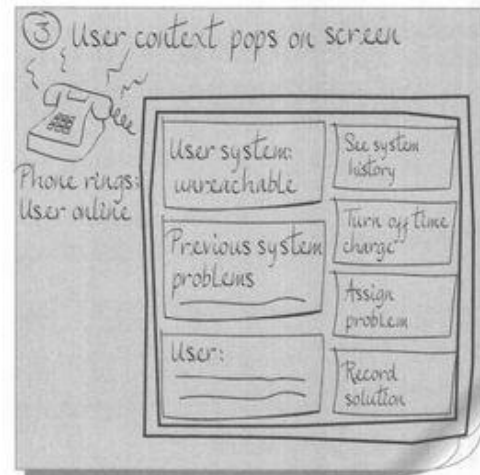 3 User context pops on screen
Phone rings:
User online
User system:
unreachable
Previous system
problems
User:
See system
history
Turn off time
charge
Assign
problem
Record
solution